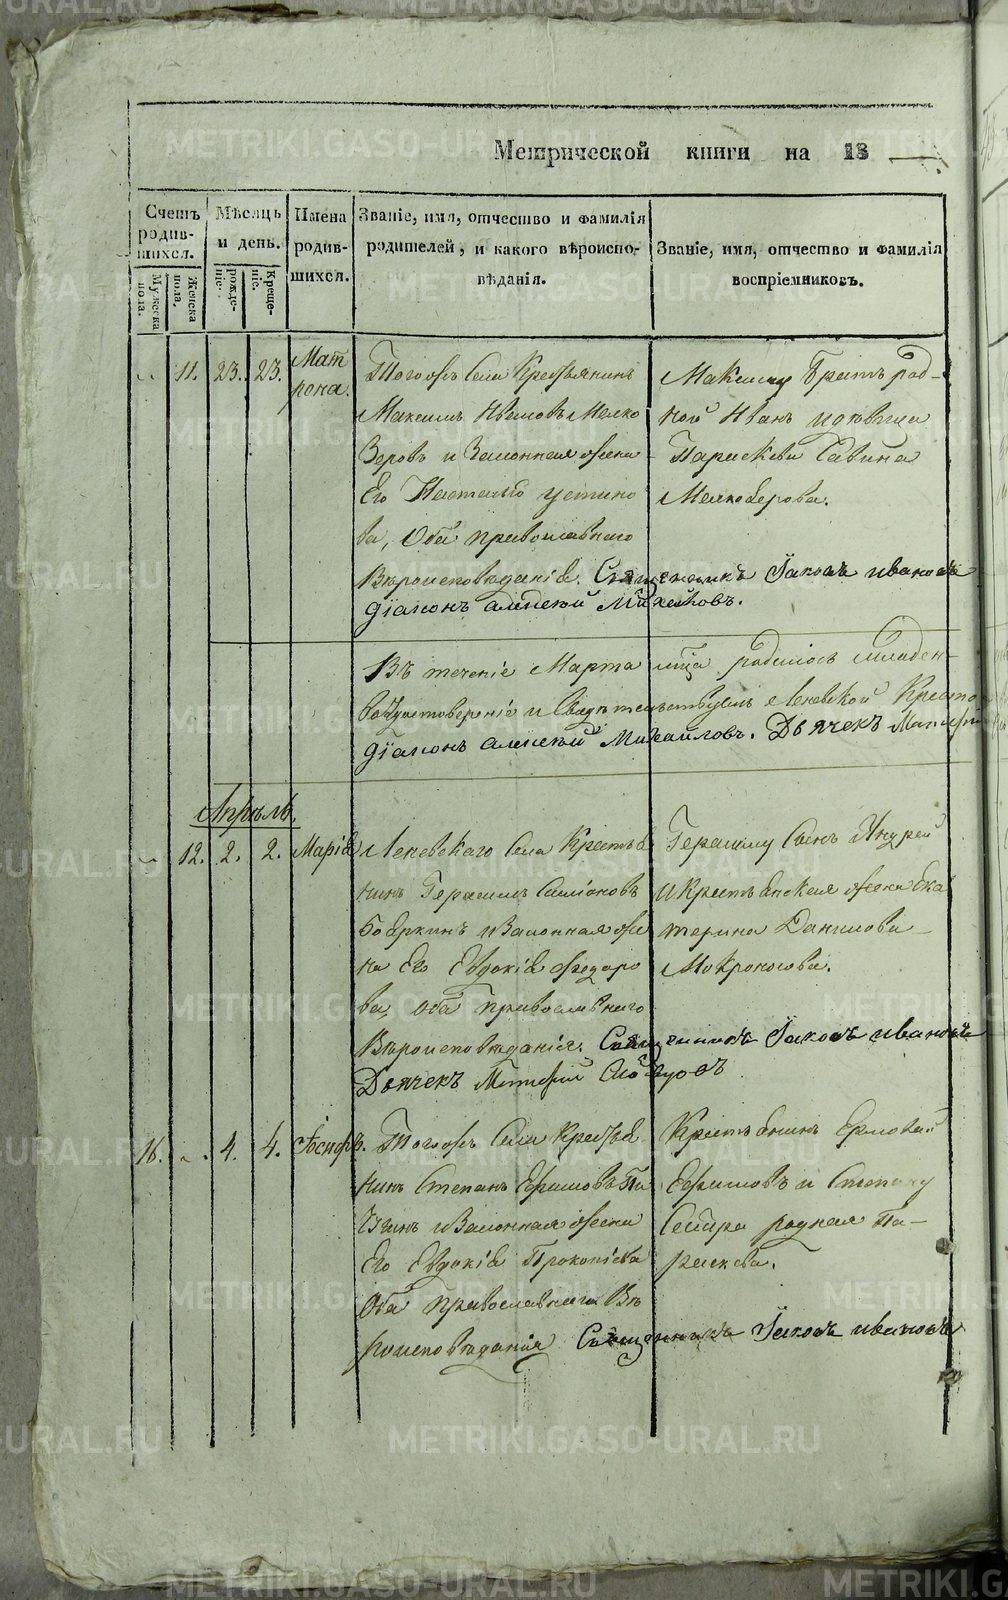 METRIKI.GASO-URAL.RU
Метрической книги на 18
Счетъ родив-шихся.
Мужеска пола.
Женска пола.
Мѣсяцъ и день.
рожде-ніе.
Креще-ніе.
Имена родив-шихся.
Званіе, имя, отчество и фамилія
родителей, и какого вѣроиспо-
вѣданія.
Званіе, имя, отчество и фамилія
воспріемниковъ.
11. 23. 23. Мат
рона.
Тогожъ Села Крестьянинъ
Максимъ Ивановъ Мелко
зеровъ и Законная жена
Его Наталья Устино
ва, Оба православнаго
Вѣроисповѣданія. Священникъ Іаковъ Ивановъ
Діаконъ Алексѣй Михайловъ.
Максиму Братъ род-
ной Иванъ и дѣвица
Параскева Савина
Мелкозерова.
Въ теченіе Марта м-ца родилось младен-
Діаконъ Алексѣй Михайловъ. Дьячекъ
Апрѣль.
12. 2. 2. Марія
Леневскаго Села Крестья
нинъ Герасимъ Симіоновъ
Бояркинъ и Законная же
на Его Евдокія Федоро
ва, Оба православнаго
Вѣроисповѣданія. Священникъ Іаковъ Ивановъ
Дьячекъ
Герасиму Сынъ Андрей
и Крестьянская жена Ека
терина Данилова
Мокроносова.
16. 4. 4. Іосифъ.
Тогожъ Села Крестья
нинъ Степанъ Ефимовъ
и Законная жена
Его Евдокія Прокопіева
Оба православнаго Вѣ
роисповѣданія Священникъ Іаковъ Ивановъ
Крестьянинъ Ермолай
Ефимовъ и Степану
Сестра родная Па-
раскева.